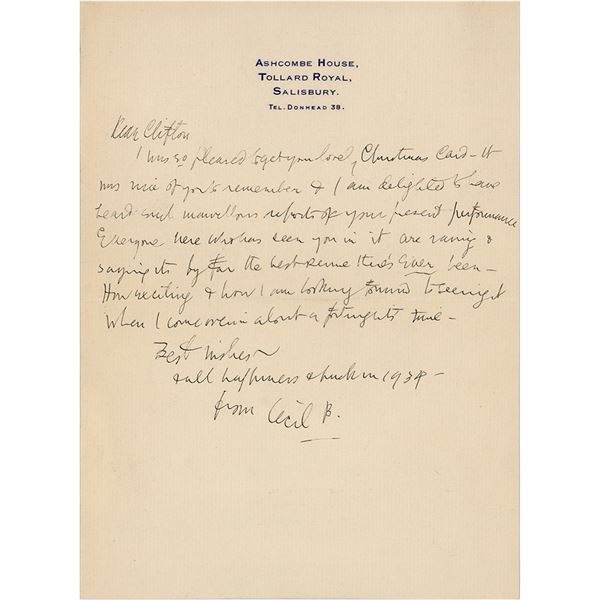 ASHCOMBE HOUSE,
TOLLARD ROYAL,
SALISBURY.
TEL. DONHEAD 38.
Dear Clifton
I was so pleased to get your lovely Christmas Card – It
was nice of you to remember & I am delighted to have
heard such marvellous reports of your present performance
Everyone here who has seen you in it are raving &
saying its by far the best revue there's Ever been –
How exciting & how I am looking forward to seeing it
when I come over in about a fortnights time –
Best wishes
& all happiness & luck in 1934 –
from Cecil B.